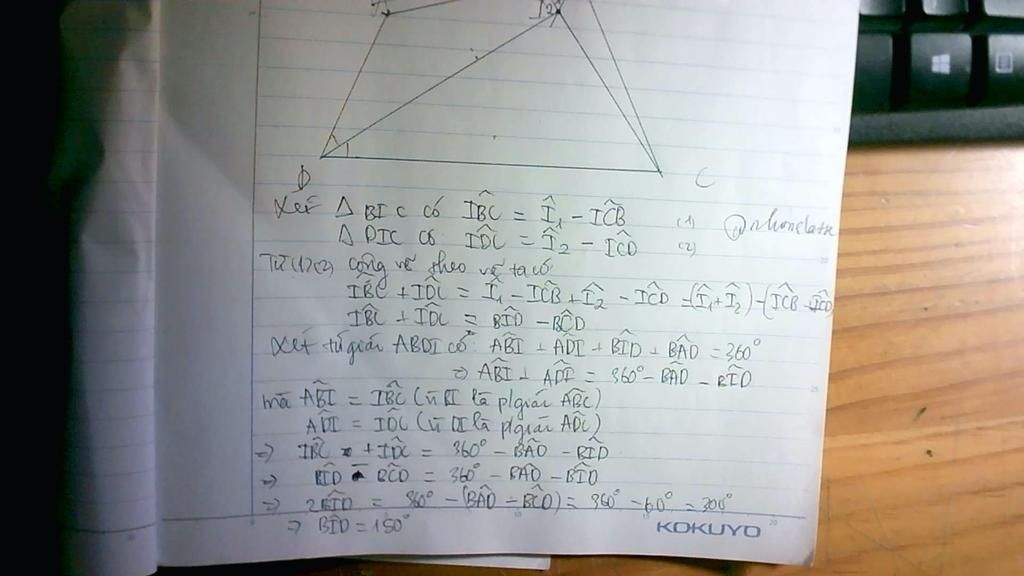 D C
Xét Δ BIC có IBC^ = I^1 - ICB^ (1)
Δ DIC có IDC^ = I^2 - ICD^ (2)
Từ (1)(2) cộng vế theo vế ta có
IBC^ + IDC^ = I^1 - ICB^ + I^2 - ICD^ = (I^1 + I^2) - (ICB^ - ICD^
IBC^ + IDC^ = BID^ - BCD^
Xét tứ giác ABDI có ABI^ + ADI^ + BID^ + BAD^ = 360°
=> ABI^ + ADI^ = 360° - BAD^ - BID^
mà ABI^ = IBC^ (vì BI là p/giác ABC^)
ADI^ = IDC^ (vì DI là p/giác ADC^)
=> IBC^ + IDC^ = 360° - BAD^ - BID^
=> BID^ - BCD^ = 360° - BAD^ - BID^
=> 2BID^ = 360° - (BAD^ - BCD^) = 360° - 60° = 300°
=> BID^ = 150°
KOKUYO